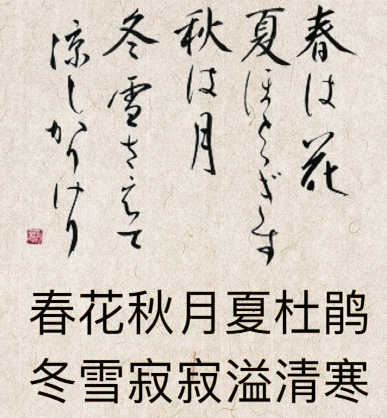 春は花
夏ほとゝぎす
秋は月
冬雪さえて
涼しかりけり
春花秋月夏杜鹃
冬雪寂寂溢清寒